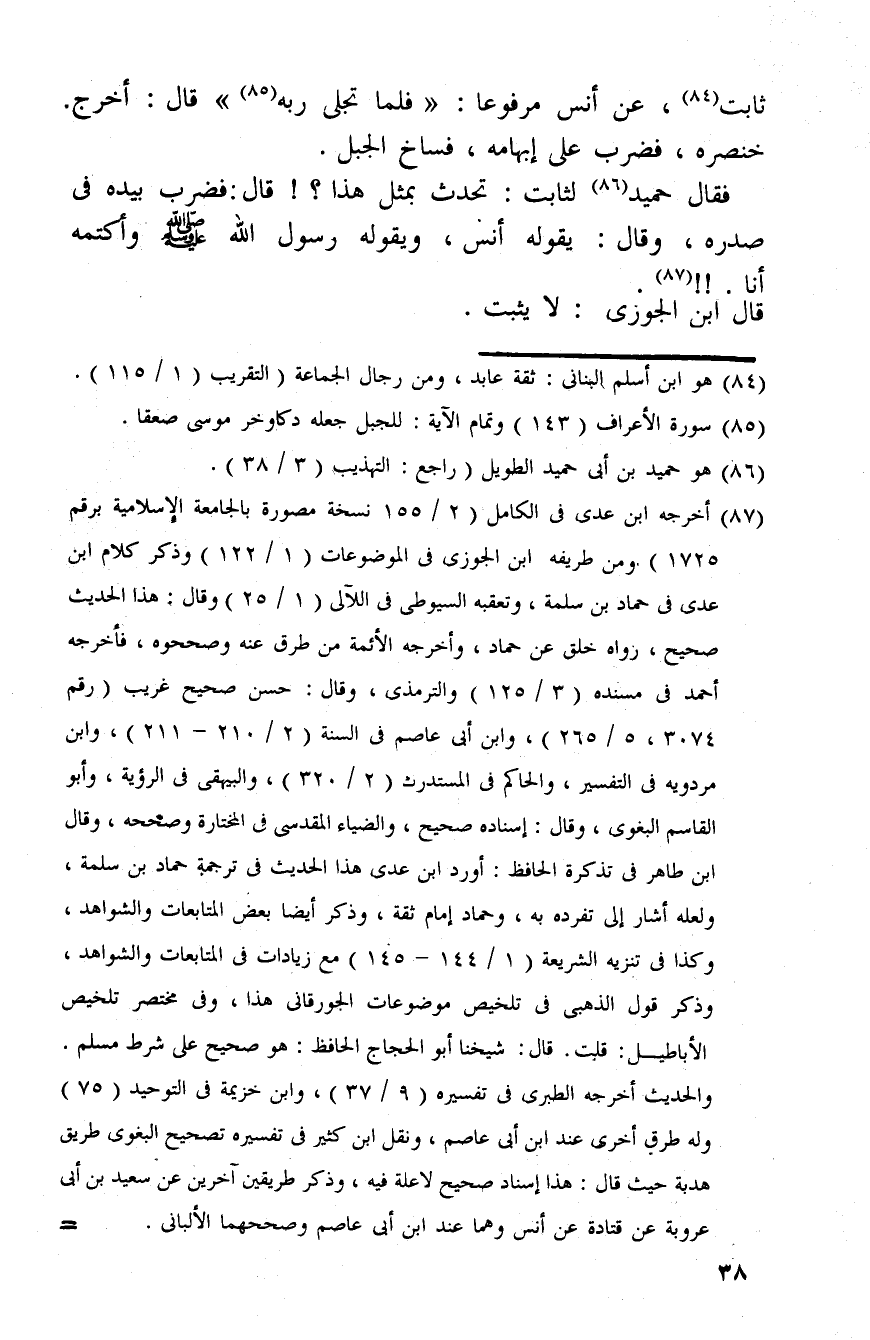 ثابت(٨٤) ، عن أنس مرفوعا : « فلما تجلى ربه(٨٥) » قال : أخرج.
خنصره ، فضرب على إبهامه ، فساخ الجبل .
فقال حميد(٨٦) لثابت : تحدث بمثل هذا ؟ ! قال :فضرب بيده فى
صدره ، وقال : يقوله أنس ، ويقوله رسول الله ﷺ وأكتمه
أنا . !!(٨٧) .
قال ابن الجوزى : لا يثبت .
(٨٤) هو ابن أسلم البنانى : ثقة عابد ، ومن رجال الجماعة ( التقريب ( ١ / ١١٥ ) .
(٨٥) سورة الأعراف ( ١٤٣ ) وتمام الآية : للجبل جعله دكاوخر موسى صعقا .
(٨٦) هو حميد بن أبى حميد الطويل ( راجع : التهذيب ( ٣ / ٣٨ ) .
(٨٧) أخرجه ابن عدى فى الكامل ( ٢ / ١٥٥ نسخة مصورة بالجامعة الإسلامية برقم
١٧٢٥ ) .ومن طريفه ابن الجوزى فى الموضوعات ( ١ / ١٢٢ ) وذكر كلام ابن
عدى فى حماد بن سلمة ، وتعقبه السيوطى فى اللآلى ( ١ / ٢٥ ) وقال : هذا الحديث
صحيح ، رواه خلق عن حماد ، وأخرجه الأئمة من طرق عنه وصححوه ، فأخرجه
أحمد فى مسنده ( ٣ / ١٢٥ ) والترمذى ، وقال : حسن صحيح غريب ( رقم
٣٠٧٤ ، ٥ / ٢٦٥ ) ، وابن أبى عاصم فى السنة ( ٢ / ٢١٠ – ٢١١ ) ، وابن
مردويه فى التفسير ، والحاكم فى المستدرك ( ٢ / ٣٢٠ ) ، والبيهقى فى الرؤية ، وأبو
القاسم البغوى ، وقال : إسناده صحيح ، والضياء المقدسى فى المختارة وصححه ، وقال
ابن طاهر فى تذكرة الحافظ : أورد ابن عدى هذا الحديث فى ترجمة حماد بن سلمة ،
ولعله أشار إلى تفرده به ، وحماد إمام ثقة ، وذكر أيضا بعض المتابعات والشواهد ،
وكذا فى تنزيه الشريعة ( ١ / ١٤٤ – ١٤٥ ) مع زيادات فى المتابعات والشواهد ،
وذكر قول الذهبى فى تلخيص موضوعات الجورقانى هذا ، وفى مختصر تلخيص
الأباطيـل : قلت . قال : شيخنا أبو الحجاج الحافظ : هو صحيح على شرط مسلم .
والحديث أخرجه الطبرى فى تفسيره ( ٩ / ٣٧ ) ، وابن خزيمة فى التوحيد ( ٧٥ )
وله طرق أخرى عند ابن أبى عاصم ، ونقل ابن كثير فى تفسيره تصحيح البغوى طريق
هدبة حيث قال : هذا إسناد صحيح لاعلة فيه ، وذكر طريقين آخرين عن سعيد بن أبى
عروبة عن قتادة عن أنس وهما عند ابن أبى عاصم وصححهما الألبانى . =
٣٨